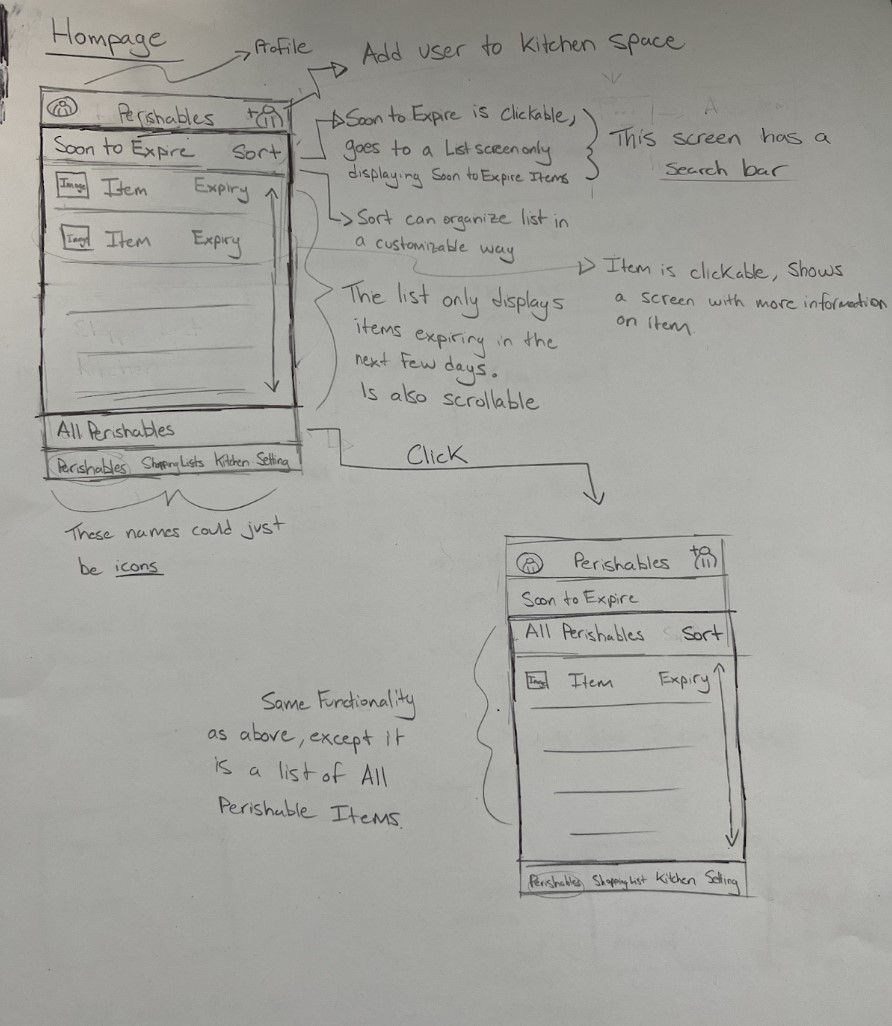 Hompage
Profile
Add user to Kitchen space
Perishables
Soon to Expire Sort
Image Item Expiry
Image Item Expiry
All Perishables
Perishables Shopping Lists Kitchen Setting
These names could just
be icons
Soon to Expire is clickable,
goes to a List screen only
displaying Soon to Expire Items
This screen has a
search bar
Sort can organize list in
a customizable way
Item is clickable, shows
a screen with more information
on item.
The list only displays
items expiring in the
next few days.
Is also scrollable
Click
Perishables
Soon to Expire
All Perishables Sort
Image Item Expiry
Perishables Shopping List Kitchen Setting
Same Functionality
as above, except it
is a list of All
Perishable Items.